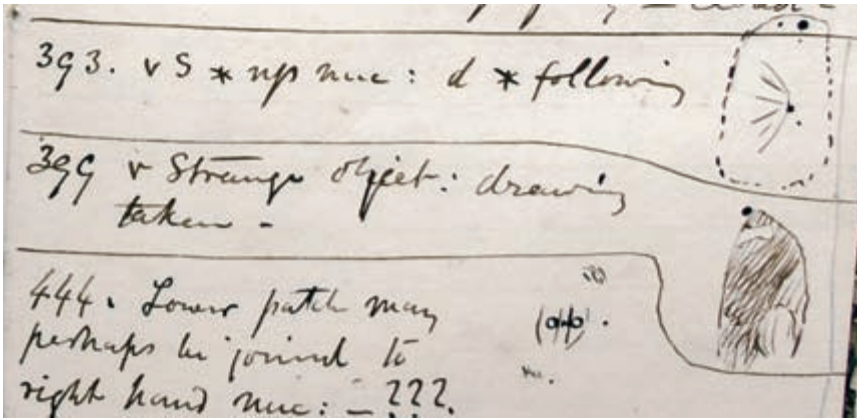 393. v S * np nuc: d * following
399 v Strange object: drawing
taken -
444. Lower patch may
perhaps be joined to
right hand nuc: - ???.